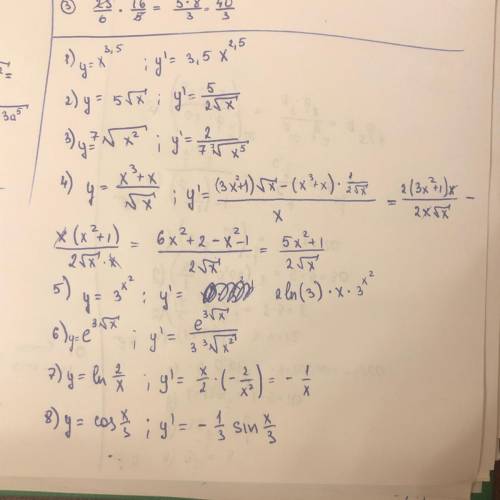 ③ 25/6 · 16/5 = 5·8/3 = 40/3
3a⁵
1) y = x^3,5 ; y' = 3,5 x^2,5
2) y = 5√x ; y' = 5/(2√x)
3) y = ⁷√x² ; y' = 2/(7 ⁷√x⁵)
4) y = (x³+x)/√x ; y' = ((3x²+1)√x − (x³+x)· 1/(2√x))/x = 2(3x²+1)x/(2x√x) −
x(x²+1)/(2√x · x) = (6x²+2−x²−1)/(2√x) = (5x²+1)/(2√x)
5) y = 3^x² ; y' = 2ln(3) · x · 3^x²
6) y = e^³√x ; y' = e^³√x/(3 ³√x²)
7) y = ln 2/x ; y' = x/2 · (− 2/x²) = − 1/x
8) y = cos x/3 ; y' = − 1/3 sin x/3